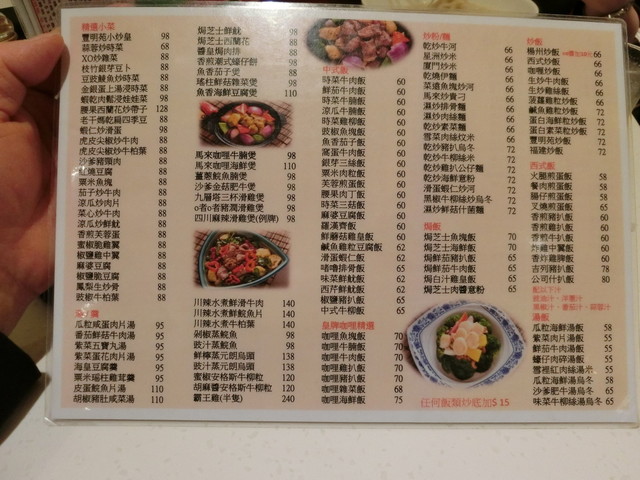 精選小菜
豐明苑小炒皇 98
蒜蓉炒時菜 68
XO炒雜菜 88
枝竹銀芽豆卜 88
豆豉鯪魚炒時菜 88
金銀蛋上湯浸時菜 88
蝦乾肉鬆浸娃娃菜 98
腰果西蘭花炒帶子 128
老干媽乾扁四季豆 88
蝦仁炒滑蛋 98
虎皮尖椒炒牛肉 88
虎皮尖椒炒牛柏葉 88
沙爹豬頸肉 88
紅燒豆腐 88
粟米魚塊 88
茄子炒牛肉 88
涼瓜炒肉片 88
菜心炒牛肉 88
涼瓜炒鮮魷 88
香煎芙蓉蛋 88
蜜椒脆雞翼 88
椒鹽雞中翼 88
麻婆豆腐 88
椒鹽脆豆腐 88
鳳梨生炒骨 88
豉椒牛柏葉 88
瓜粒咸蛋肉片湯 95
番茄鮮菇牛肉湯 95
紫菜五寶丸湯 95
紫菜蛋花肉片湯 95
海皇豆腐羹 95
粟米瑤柱雞茸羹 95
皮蛋鯇魚片湯 110
胡椒豬肚咸菜湯 110
焗芝士鮮魷 98
焗芝士西蘭花 88
醬皇焗肉排 88
香煎潮式蠔仔餅 98
魚香茄子煲 88
瑤柱鮮菇雜菜煲 98
魚香海鮮豆腐煲 110
馬來咖哩牛腩煲 98
馬來咖哩海鮮煲 110
薑蔥鯇魚腩煲 98
沙爹金菇肥牛煲 98
九層塔三杯滑雞煲 98
o者o者豬潤滑雞煲 98
四川麻辣滑雞煲(例牌) 98
川辣水煮鮮滑牛肉 140
川辣水煮鮮鯇魚片 140
川辣水煮牛柏葉 140
剁椒蒸鯇魚 98
豉汁蒸鯇魚 98
鮮檸蒸元朗烏頭 138
豉汁蒸元朗烏頭 138
蜜椒安格斯牛柳粒 120
胡麻醬安格斯牛柳粒 120
霸王雞(半隻) 240
中式飯
時菜牛肉飯 60
鮮茄牛肉飯 60
時菜牛腩飯 60
涼瓜牛肉飯 60
時菜雞柳飯 60
豉椒魚塊飯 60
魚香茄子飯 60
窩蛋牛肉飯 60
銀芽三絲飯 60
粟米肉粒飯 60
芙蓉煎蛋飯 60
腰果肉丁飯 60
時菜三菇飯 60
麻婆豆腐飯 60
羅漢齊飯 60
鮮蘑菇雞皇飯 60
鹹魚雞粒豆腐飯 60
滑蛋蝦仁飯 62
咕嚕排骨飯 62
味菜鮮魷飯 62
西芹鮮魷飯 62
椒鹽豬扒飯 65
中式牛柳飯 65
皇牌咖哩精選
咖哩魚塊飯 70
咖哩牛腩飯 70
咖哩牛肉飯 70
咖哩雞扒飯 70
咖哩豬扒飯 70
咖哩雜菜飯 68
咖哩海鮮飯 75
炒粉/麵
乾炒牛河 66
星洲炒米 66
廈門炒米 66
乾燒伊麵 66
菜遠魚塊炒河 66
馬來炒貴刁 66
濕炒排骨麵 66
濕炒肉絲麵 66
乾炒素菜麵 66
雪菜肉絲炆米 66
乾炒豬扒烏冬 72
乾炒牛柳絲米 72
乾炒雞扒公仔麵 72
乾炒海鮮意粉 72
滑蛋蝦仁炒河 72
黑椒牛柳絲炒烏冬 72
濕炒鮮菇什菌麵 72
焗飯
焗芝士魚塊飯 70
焗芝士海鮮飯 70
焗鮮茄豬扒飯 65
焗鮮茄牛肉飯 65
焗白汁雞皇飯 65
焗芝士肉醬意粉 65
任何飯類炒底加$ 15
炒飯
楊州炒飯 66
西式炒飯 66
咖喱炒飯 66
生炒牛肉飯 66
生炒雞絲飯 66
菠蘿雞粒炒飯 66
鹹魚雞粒炒飯 72
蛋白海鮮粒炒飯 72
蛋白素菜粒炒飯 72
豐明苑炒飯 72
福建炒飯 72
西式飯
火腿煎蛋飯 58
餐肉煎蛋飯 58
腸仔煎蛋飯 58
叉燒煎蛋飯 65
香煎豬扒飯 65
香煎雞扒飯 65
香煎牛扒飯 65
香煎魚扒飯 65
香炸雞脾飯 65
吉列豬扒飯 78
公司什扒飯 80
湯飯
瓜粒海鮮湯飯 58
紫菜肉片湯飯 55
鮮茄牛肉湯飯 55
蠔仔肉碎湯飯 55
雪裡紅肉絲湯米 55
瓜粒海鮮湯烏冬 58
沙爹肥牛湯烏冬 65
味菜牛柳絲湯烏冬 65